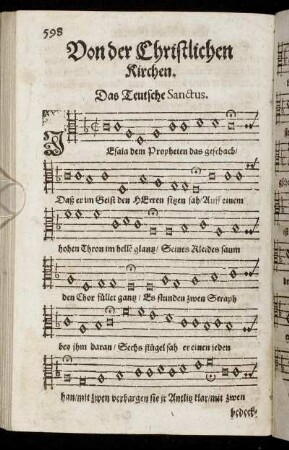 598
Von der Christlichen
Kirchen.
Das Teutsche Sanctus.
JEsaia dem Propheten das geschach/
Daß er im Geist den HErren sitzen sah/Auff einem
hohen Thron im hellē glantz/ Seines Kleides saum
den Chor füllet gantz/ Es stunden zwen Seraph
bey jhm daran/ Sechs flügel sah er einen jeden
han/mit zwen verbargen sie jr Antlitz klar/mit zwen
bedeck-